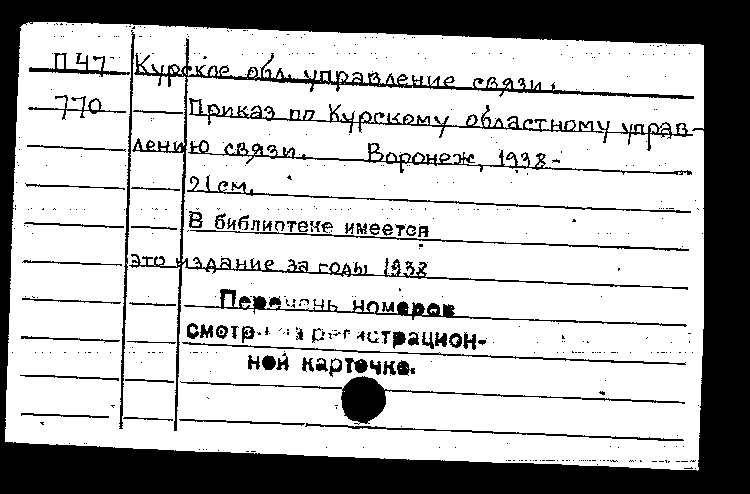 П47 Курское обл. управление связи.
770 Приказ по Курскому областному управ-
лению связи. Воронеж, 1938-
21см.
В библиотеке имеется
это издание за годы 1938
Перечень номеров
смотри на регистрацион-
ной карточке.